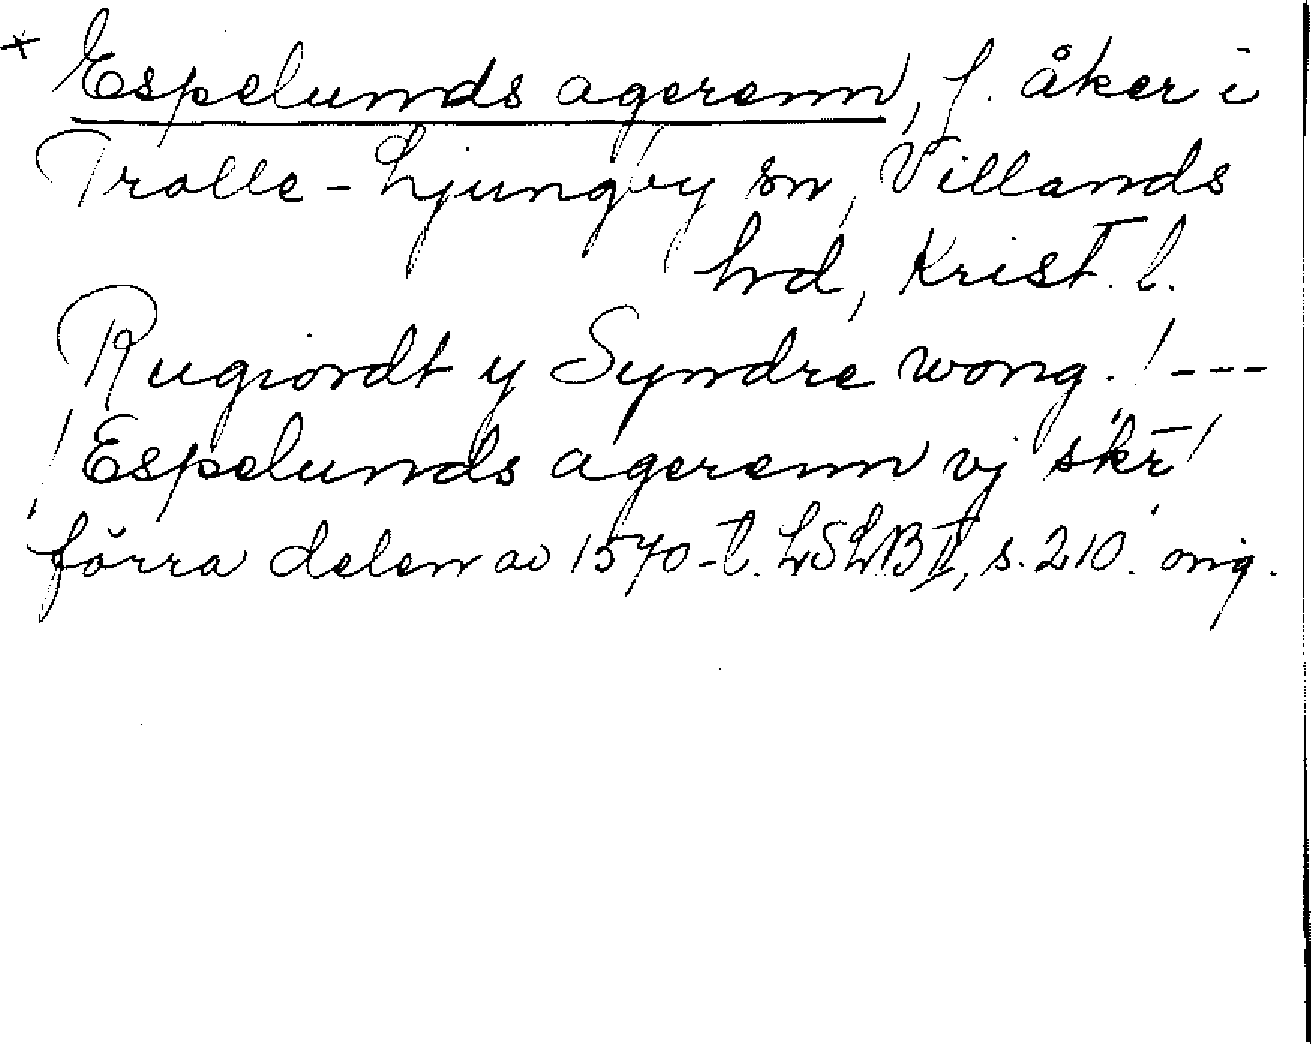 × Espelunds agerenn, f. åker i
Trolle-Ljungby sn, Villands
hrd, Krist. l.
Rugiordt y Syndre wong. / ---
/ Espelunds agerenn vj skr̄ /
förra delen av 1570-t. LSLB II, s. 210. orig.